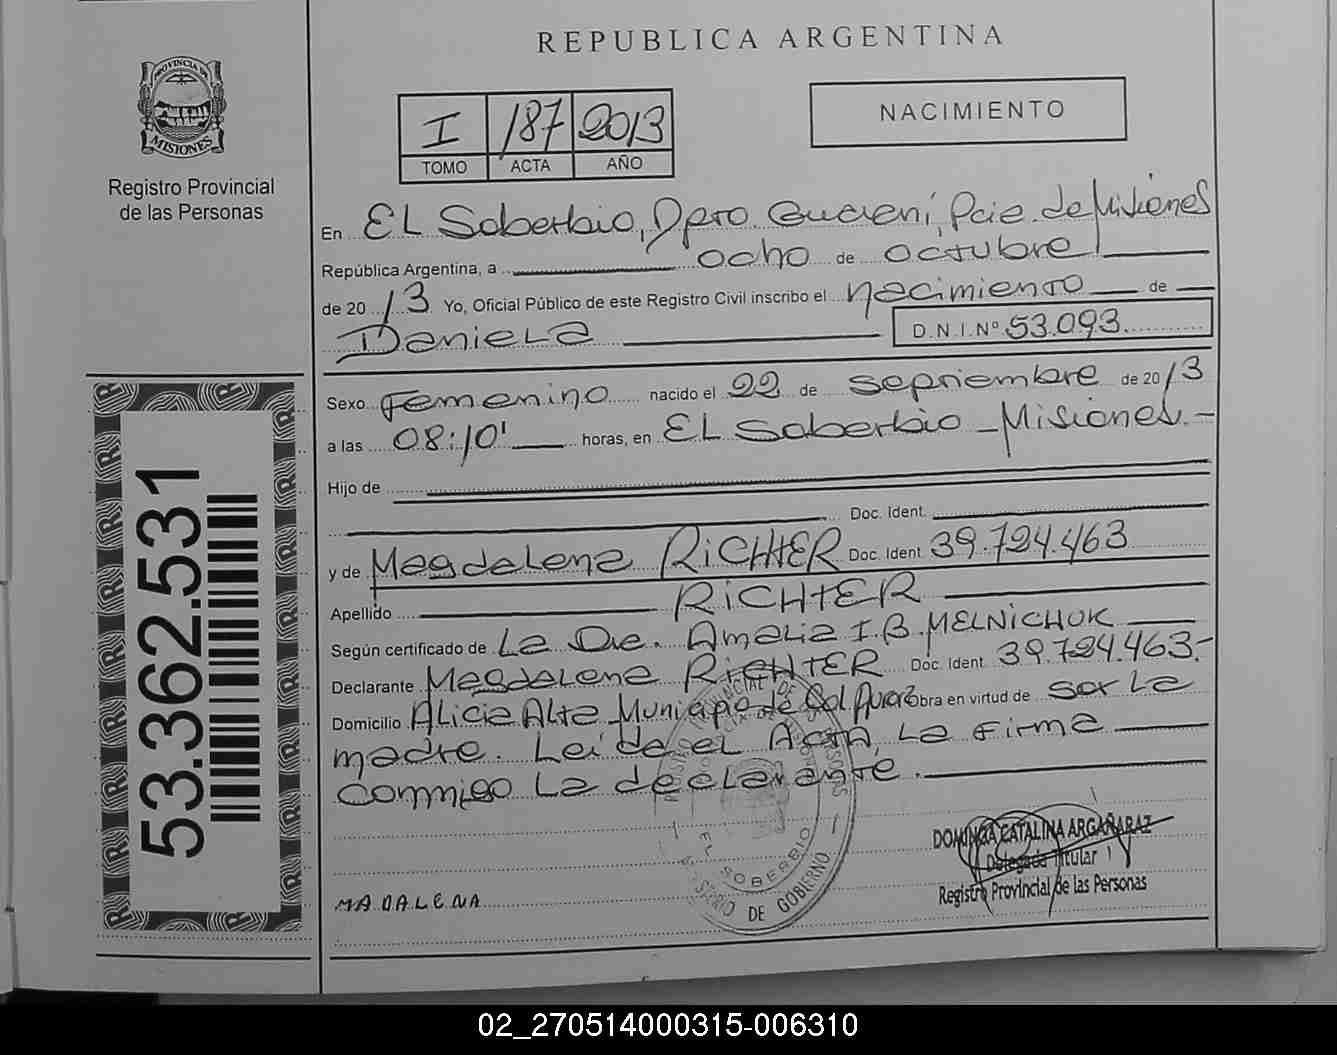 REPUBLICA ARGENTINA
PROVINCIA DE MISIONES
Registro Provincial
de las Personas
I 187 2013
TOMO ACTA AÑO
NACIMIENTO
En EL Soberbio, Dpto. Guarani, Pcia. de Misiones
República Argentina, a ocho de octubre
de 2013 Yo, Oficial Público de este Registro Civil inscribo el nacimiento de
Daniela D.N.I.Nº 53.093.
Sexo Femenino nacido el 22 de septiembre de 2013
a las 08:10' horas, en EL Soberbio - Misiones.-
Hijo de
Doc. Ident.
y de Magdalena RICHTER Doc. Ident 39.724.463
Apellido RICHTER
Según certificado de La Dra. Amalia I.B. MELNICHUK
Declarante Magdalena RICHTER Doc. Ident 39.724.463.-
Domicilio Alicia Alta Municipio de Col Aurora Obra en virtud de ser La
madre. Leida el Acta, La firma
conmigo La declarante.
53.362.531
REGISTRO PROVINCIAL DE LAS PERSONAS
EL SOBERBIO
DE GOBIERNO
MADALENA
DOMINGA CATALINA ARGAÑARAZ
Delegada Titular
Registro Provincial de las Personas
02_270514000315-006310